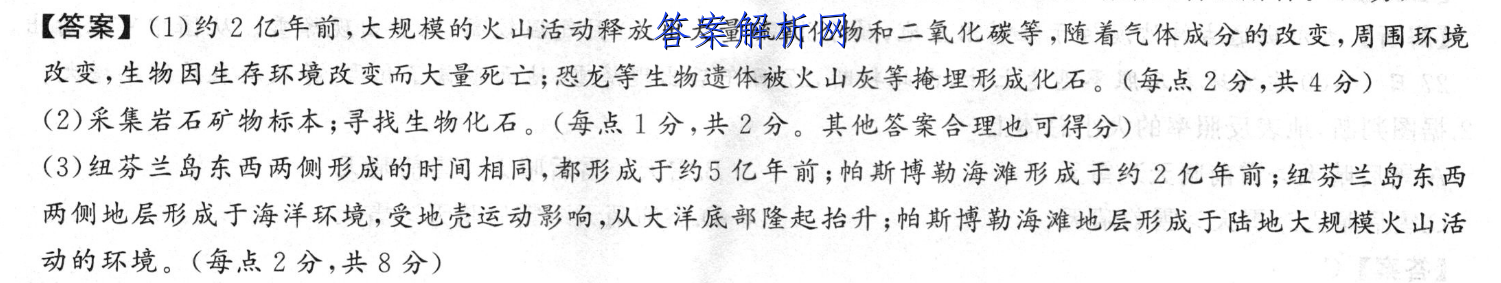 【答案】(1)约2亿年前,大规模的火山活动释放出大量硫氧化物和二氧化碳等,随着气体成分的改变,周围环境
答案解析网
改变,生物因生存环境改变而大量死亡;恐龙等生物遗体被火山灰等掩埋形成化石。(每点2分,共4分)
(2)采集岩石矿物标本;寻找生物化石。(每点1分,共2分。其他答案合理也可得分)
(3)纽芬兰岛东西两侧形成的时间相同,都形成于约5亿年前;帕斯博勒海滩形成于约2亿年前;纽芬兰岛东西
两侧地层形成于海洋环境,受地壳运动影响,从大洋底部隆起抬升;帕斯博勒海滩地层形成于陆地大规模火山活
动的环境。(每点2分,共8分)